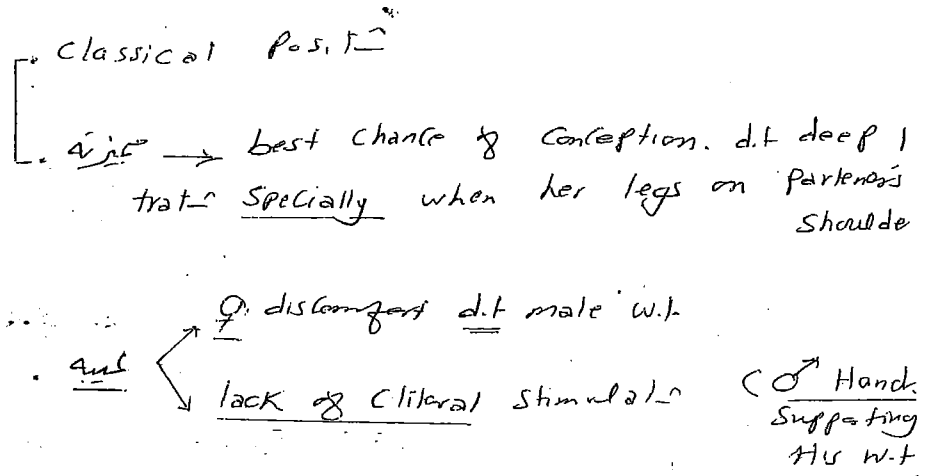 . Classical Posit⁀
. ميزته → best chance of conception. d.t deep
trat⁀ specially when her legs on Partener's
shoulde
♀. discomfort d.t male w.t
. عيبه
lack of Cliteral stimulat⁀ (♂ Hand.
Supporting
His w.t